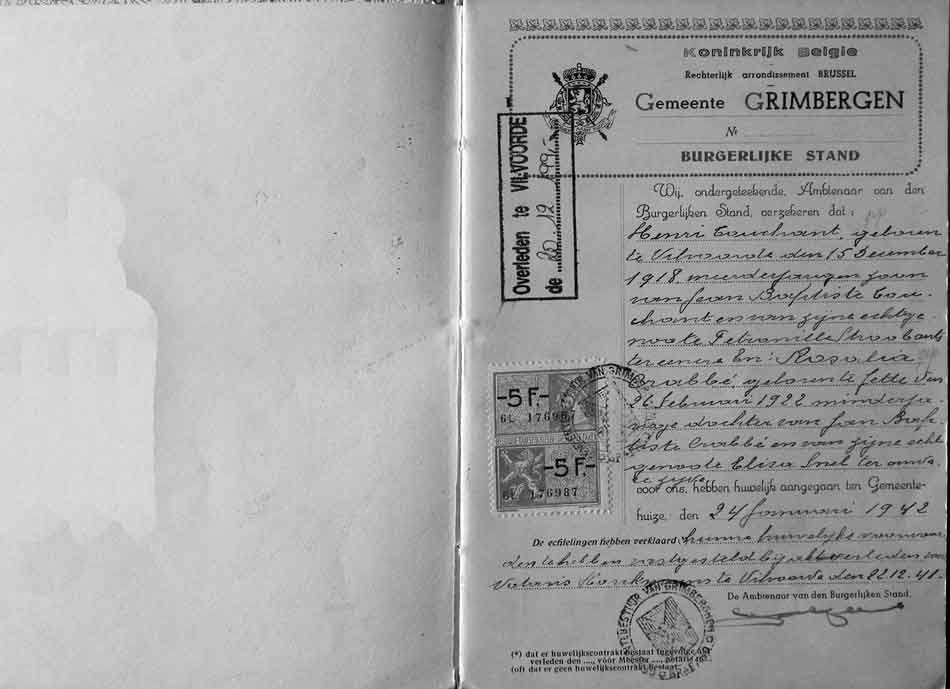 Koninkrijk Belgie
Rechterlijk arrondissement BRUSSEL
Gemeente GRIMBERGEN
Nr
BURGERLIJKE STAND
Overleden te VILVOORDE
de 30 12 199
Wij, ondergeteekende, Ambtenaar van den
Burgerlijken Stand, verzekeren dat :
Henri Couchant, geboren
te Vilvoorde den 15 December
1918, meerderjarigen zoon
van Jean Baptiste Cou-
chant en van zijne echtge-
noote Petronille Stroobants
ter eenre En: Rosalia
Crabbé, geboren te Jette den
26 Februari 1922 minderja-
rige dochter van Jan Bap-
tiste Crabbé en van zijne echt-
genoote Elisa Snel ter andere
zijde
voor ons, hebben huwelijk aangegaan ten Gemeente-
huize, den 24 Januari 1942
-5 F.-
6L 176987
-5 F.-
6L 176987
De echtelingen hebben verklaard hunne huwelijksvoorwaar-
den te hebben vastgesteld bij akt verleden voor
Notaris te Vilvoorde den 22.12.41.
De Ambtenaar van den Burgerlijken Stand.
GEMEENTEBESTUUR VAN GRIMBERGEN
(*) dat er huwelijkscontrakt bestaat ingevolge akt
verleden den ...., vóór Meester ...., notaris te
(of) dat er geen huwelijkscontrakt bestaat.